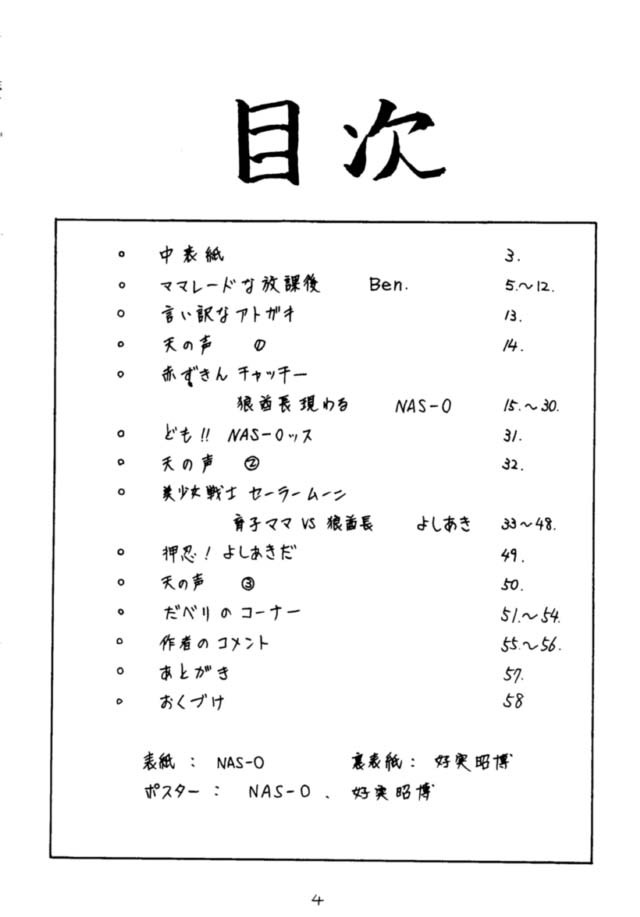 目次
○ 中表紙 3.
○ ママレードな放課後 Ben. 5.~12.
○ 言い訳なアトガキ 13.
○ 天の声 ① 14.
○ 赤ずきんチャッチー
狼酋長現わる NAS-O 15.~30.
○ ども!! NAS-Oッス 31.
○ 天の声 ② 32.
○ 美少女戦士 セーラームーン
育子ママ VS 狼酋長 よしあき 33~48.
○ 押忍! よしあきだ 49.
○ 天の声 ③ 50.
○ だべりのコーナー 51.~54.
○ 作者のコメント 55.~56.
○ あとがき 57.
○ おくづけ 58
表紙: NAS-O 裏表紙: 好実昭博
ポスター: NAS-O、好実昭博
4